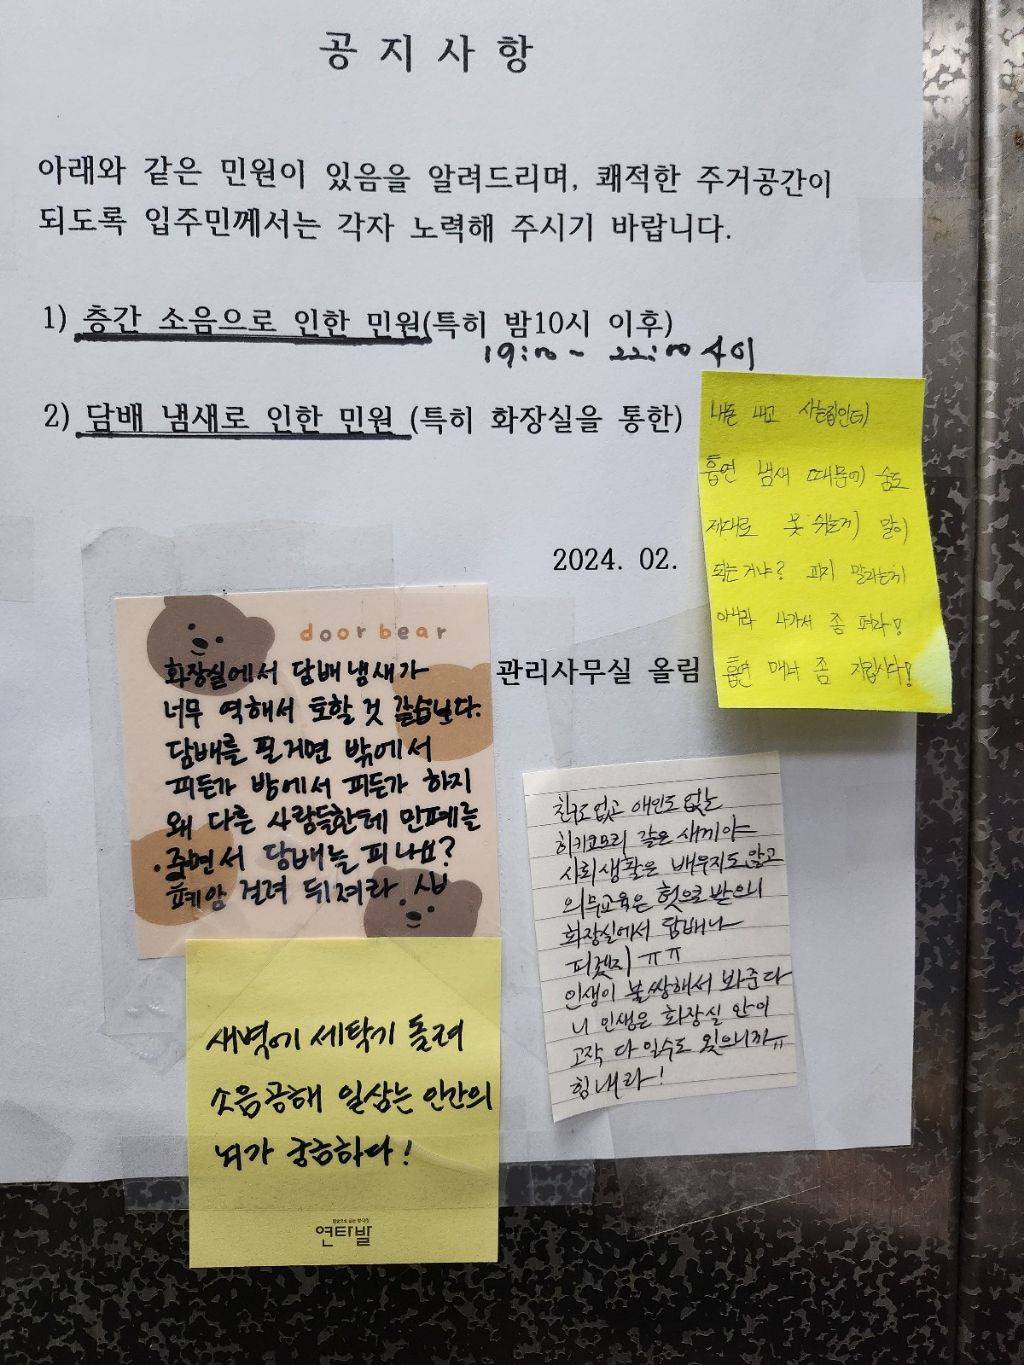 공 지 사 항
아래와 같은 민원이 있음을 알려드리며, 쾌적한 주거공간이
되도록 입주민께서는 각자 노력해 주시기 바랍니다.
1) 층간 소음으로 인한 민원(특히 밤10시 이후)
19:00~ 22:00 사이
2) 담배 냄새로 인한 민원 (특히 화장실을 통한)
내돈 내고 사는집인데
흡연 냄새 때문에 숨도
제대로 못 쉬는게 말이
되는거냐? 피지 말라는게
아니라 나가서 좀 펴라!
흡연 매너 좀 지킵시다!
2024. 02.
관리사무실 올림
door bear
화장실에서 담배냄새가
너무 역해서 토할 것 같습니다.
담배를 필거면 밖에서
피든가 방에서 피든가 하지
왜 다른 사람들한테 민폐를
주면서 담배를 피나요?
폐암 걸려 뒤져라
친구도없고 애인도 없는
히키코모리 같은 새끼야
사회생활은 배우지도 않고
의무교육은 헛으로 받으니
화장실에서 담배나
피겠지 ㅠㅠ
인생이 불쌍해서 봐준다
니 인생은 화장실 안이
고작 다 일수도 있으니까ㅠ
힘내라!
새벽에 세탁기 돌려
소음공해 일삼는 인간의
뇌가 궁금하다!
연타발